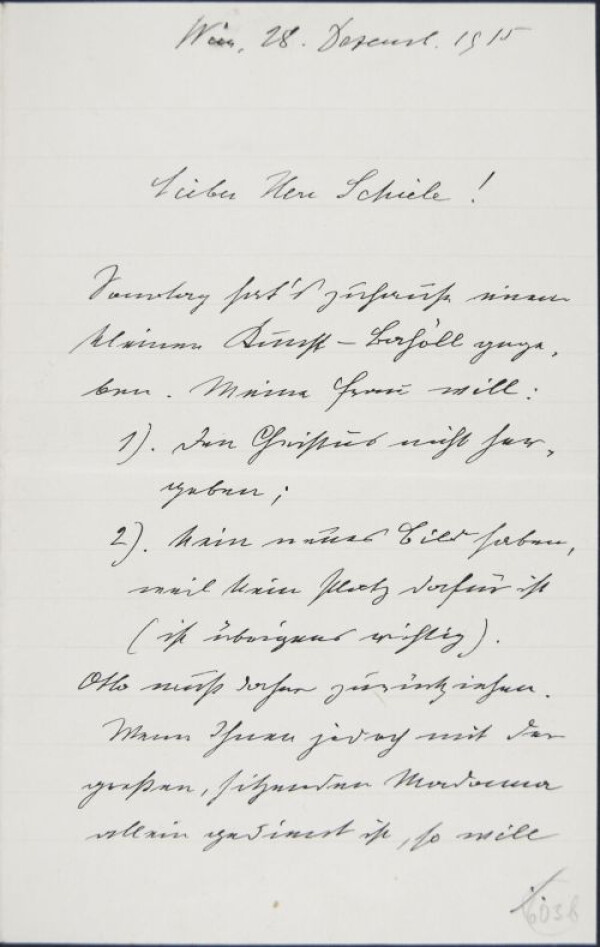 Wien, 28. Dezemb. 1915
Lieber Herr Schiele!
Sonntag hat's zuhause einen
kleinen Kunst-Bahöll gege,
ben. Meine Frau will:
1). den Christus nicht her,
geben;
2). kein neues Bild haben,
weil kein Platz dafür ist
(ist übrigens richtig).
Otto muß daher zurückziehen.
Wenn Ihnen jedoch mit der
großen, sitzenden Madonna
allein gedient ist, so will